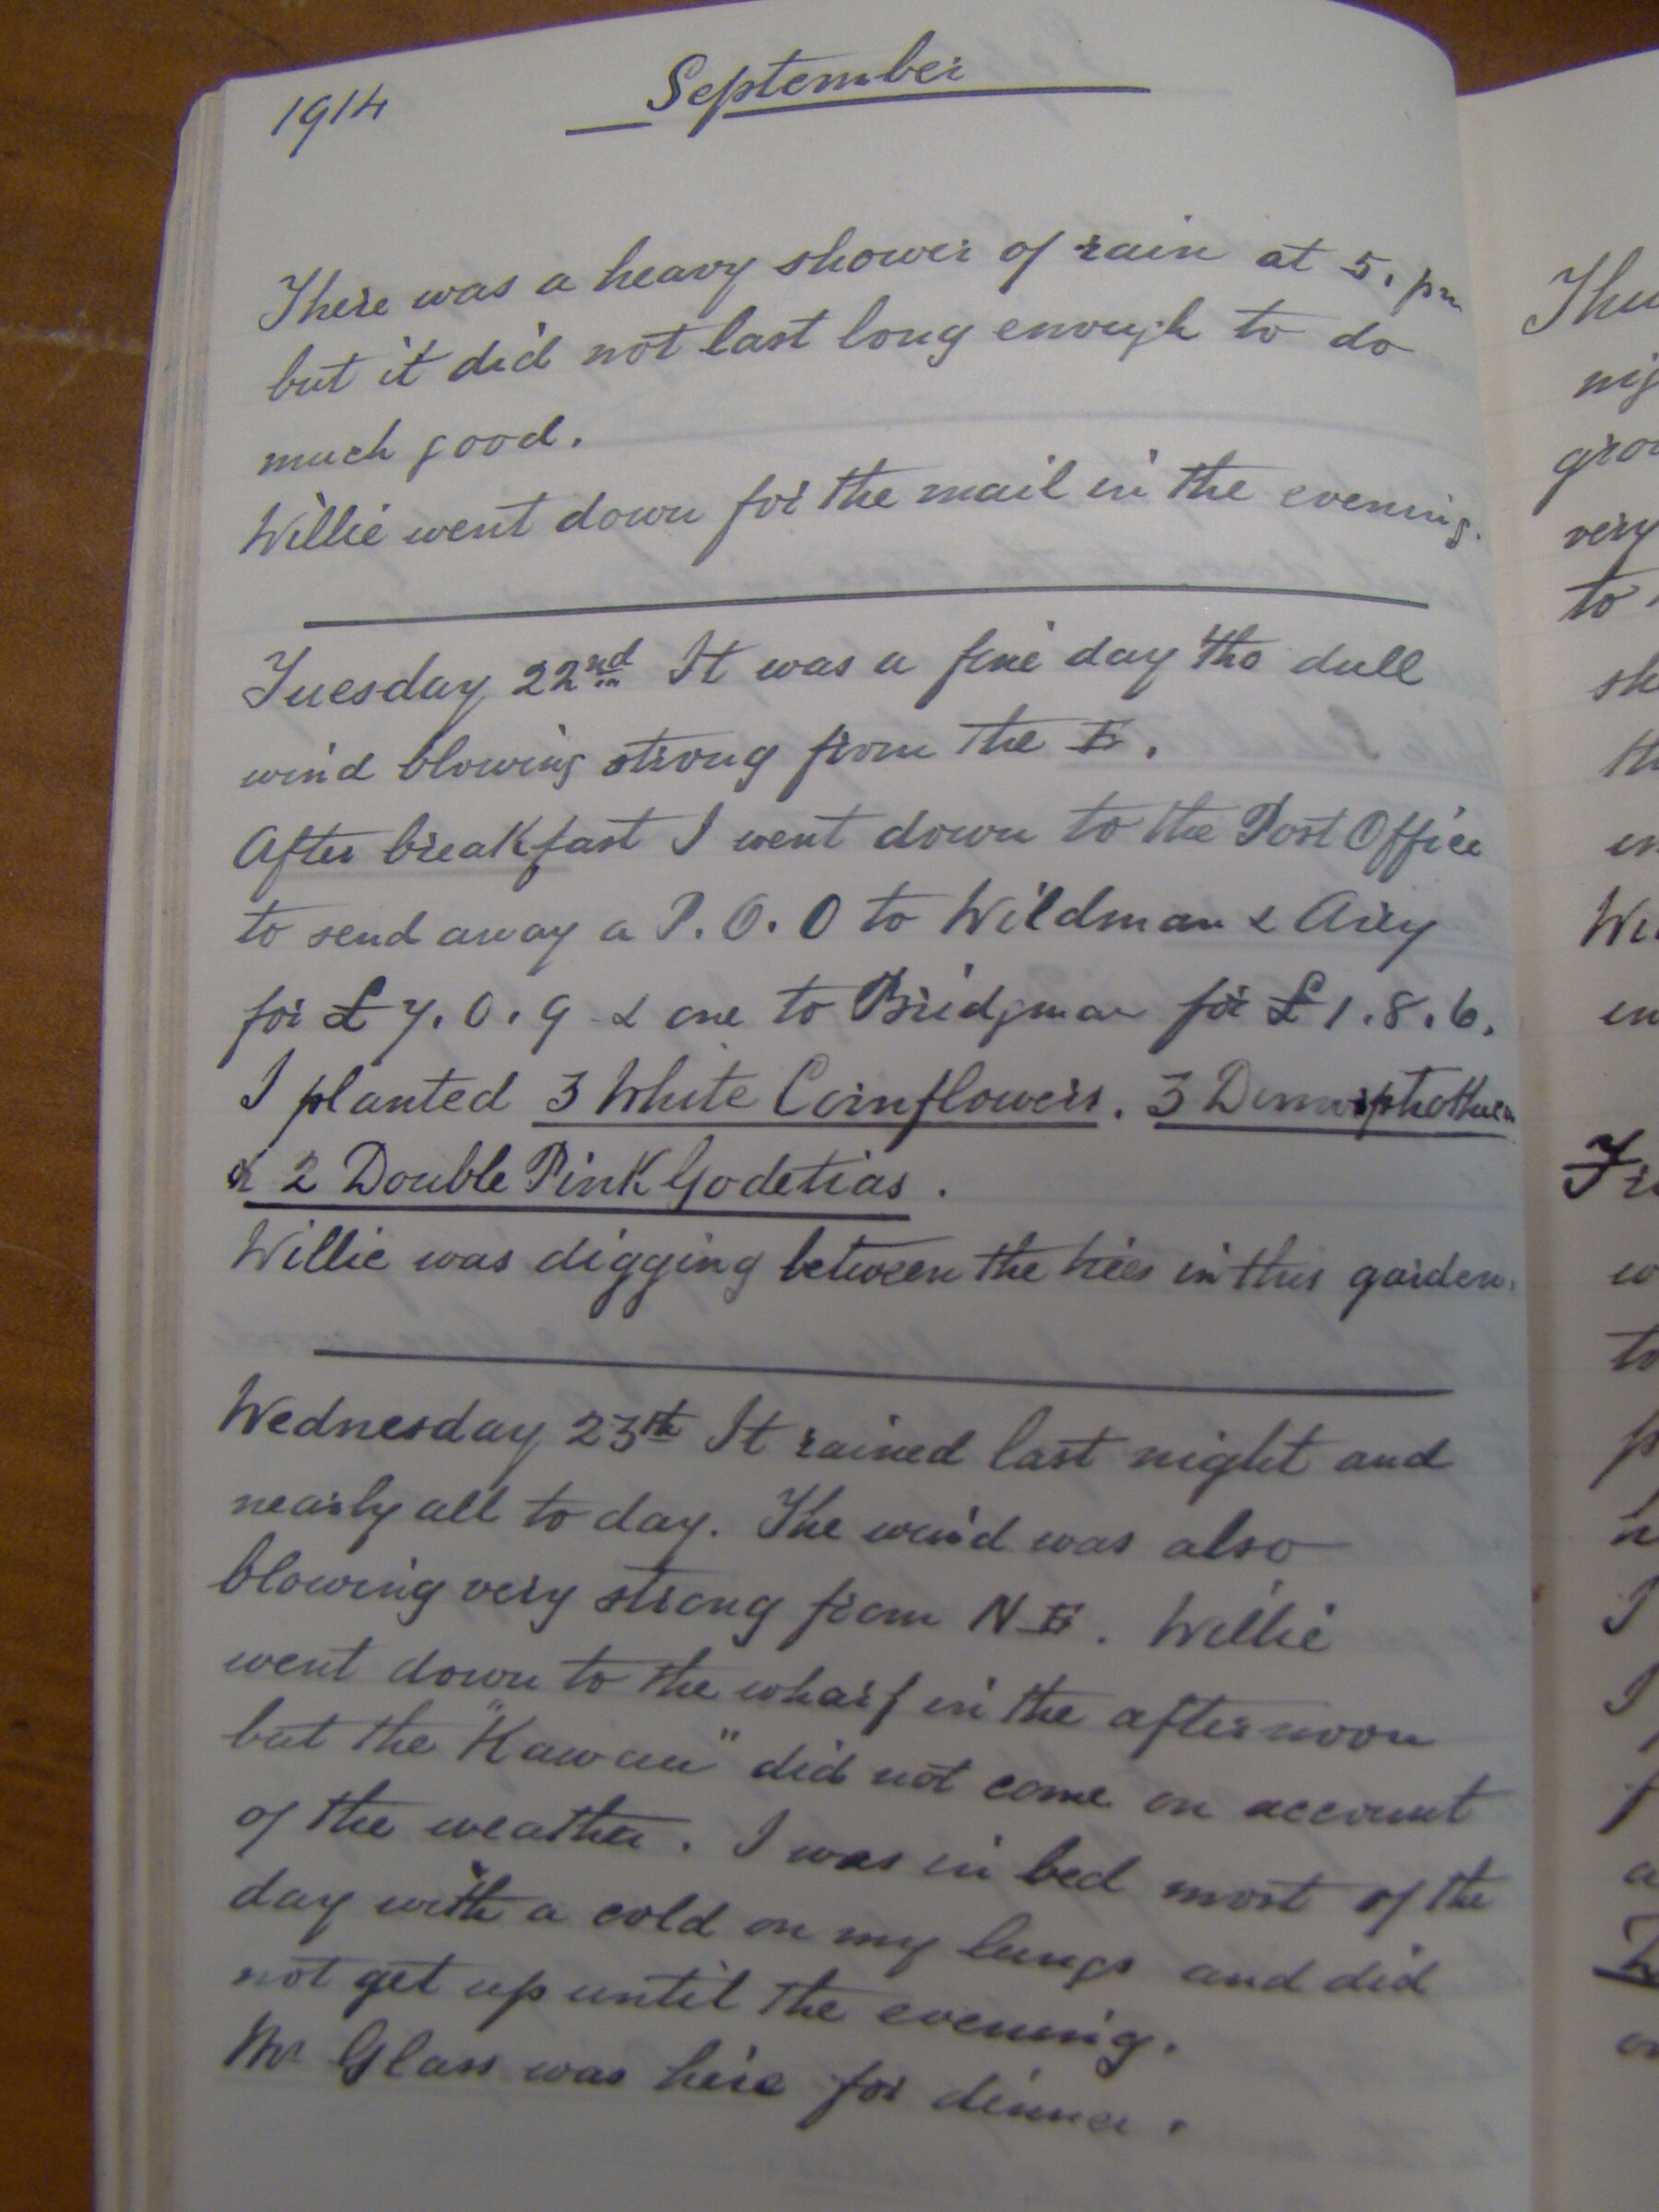 1914 September
There was a heavy shower of rain at 5. pm
but it did not last long enough to do
much good.
Willie went down for the mail in the evening.
Tuesday 22nd It was a fine day tho dull
wind blowing strong from the E.
After breakfast I went down to the Post Office
to send away a P.O.O to Wildman & Arey
for £7.0.9 & one to Bridgman for £1.8.6.
I planted 3 White Cornflowers. 3
& 2 Double Pink Godetias.
Willie was digging between the trees in this garden.
Wednesday 23th It rained last night and
nearly all to day. The wind was also
blowing very strong from N E. Willie
went down to the wharf in the afternoon
but the "Kawau" did not come on account
of the weather. I was in bed most of the
day with a cold on my lungs and did
not get up until the evening.
Mr Glass was here for dinner.
very
to